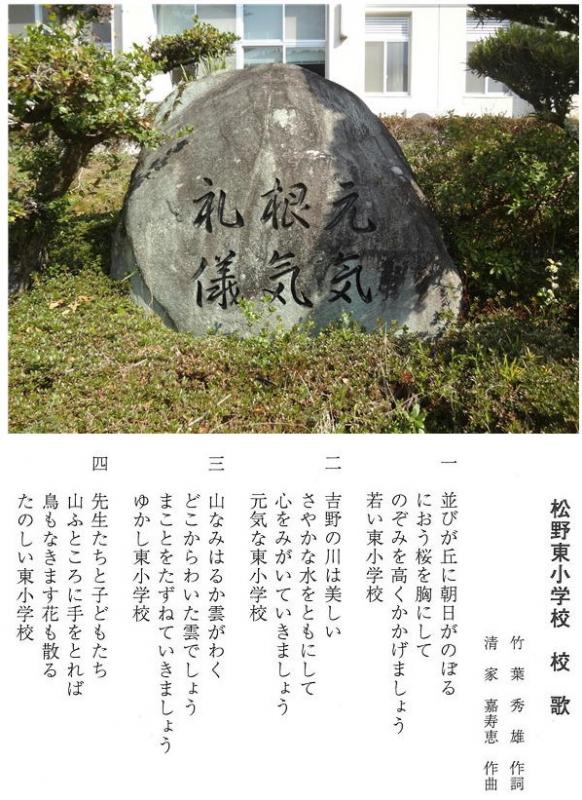 元気
根気
礼儀
松野東小学校 校歌
竹葉秀雄 作詞
清家嘉寿恵 作曲
一 並びが丘に朝日がのぼる
におう桜を胸にして
のぞみを高くかかげましょう
若い東小学校
二 吉野の川は美しい
さやかな水をともにして
心をみがいていきましょう
元気な東小学校
三 山なみはるか雲がわく
どこからわいた雲でしょう
まことをたずねていきましょう
ゆかし東小学校
四 先生たちと子どもたち
山ふところに手をとれば
鳥もなきます花も散る
たのしい東小学校